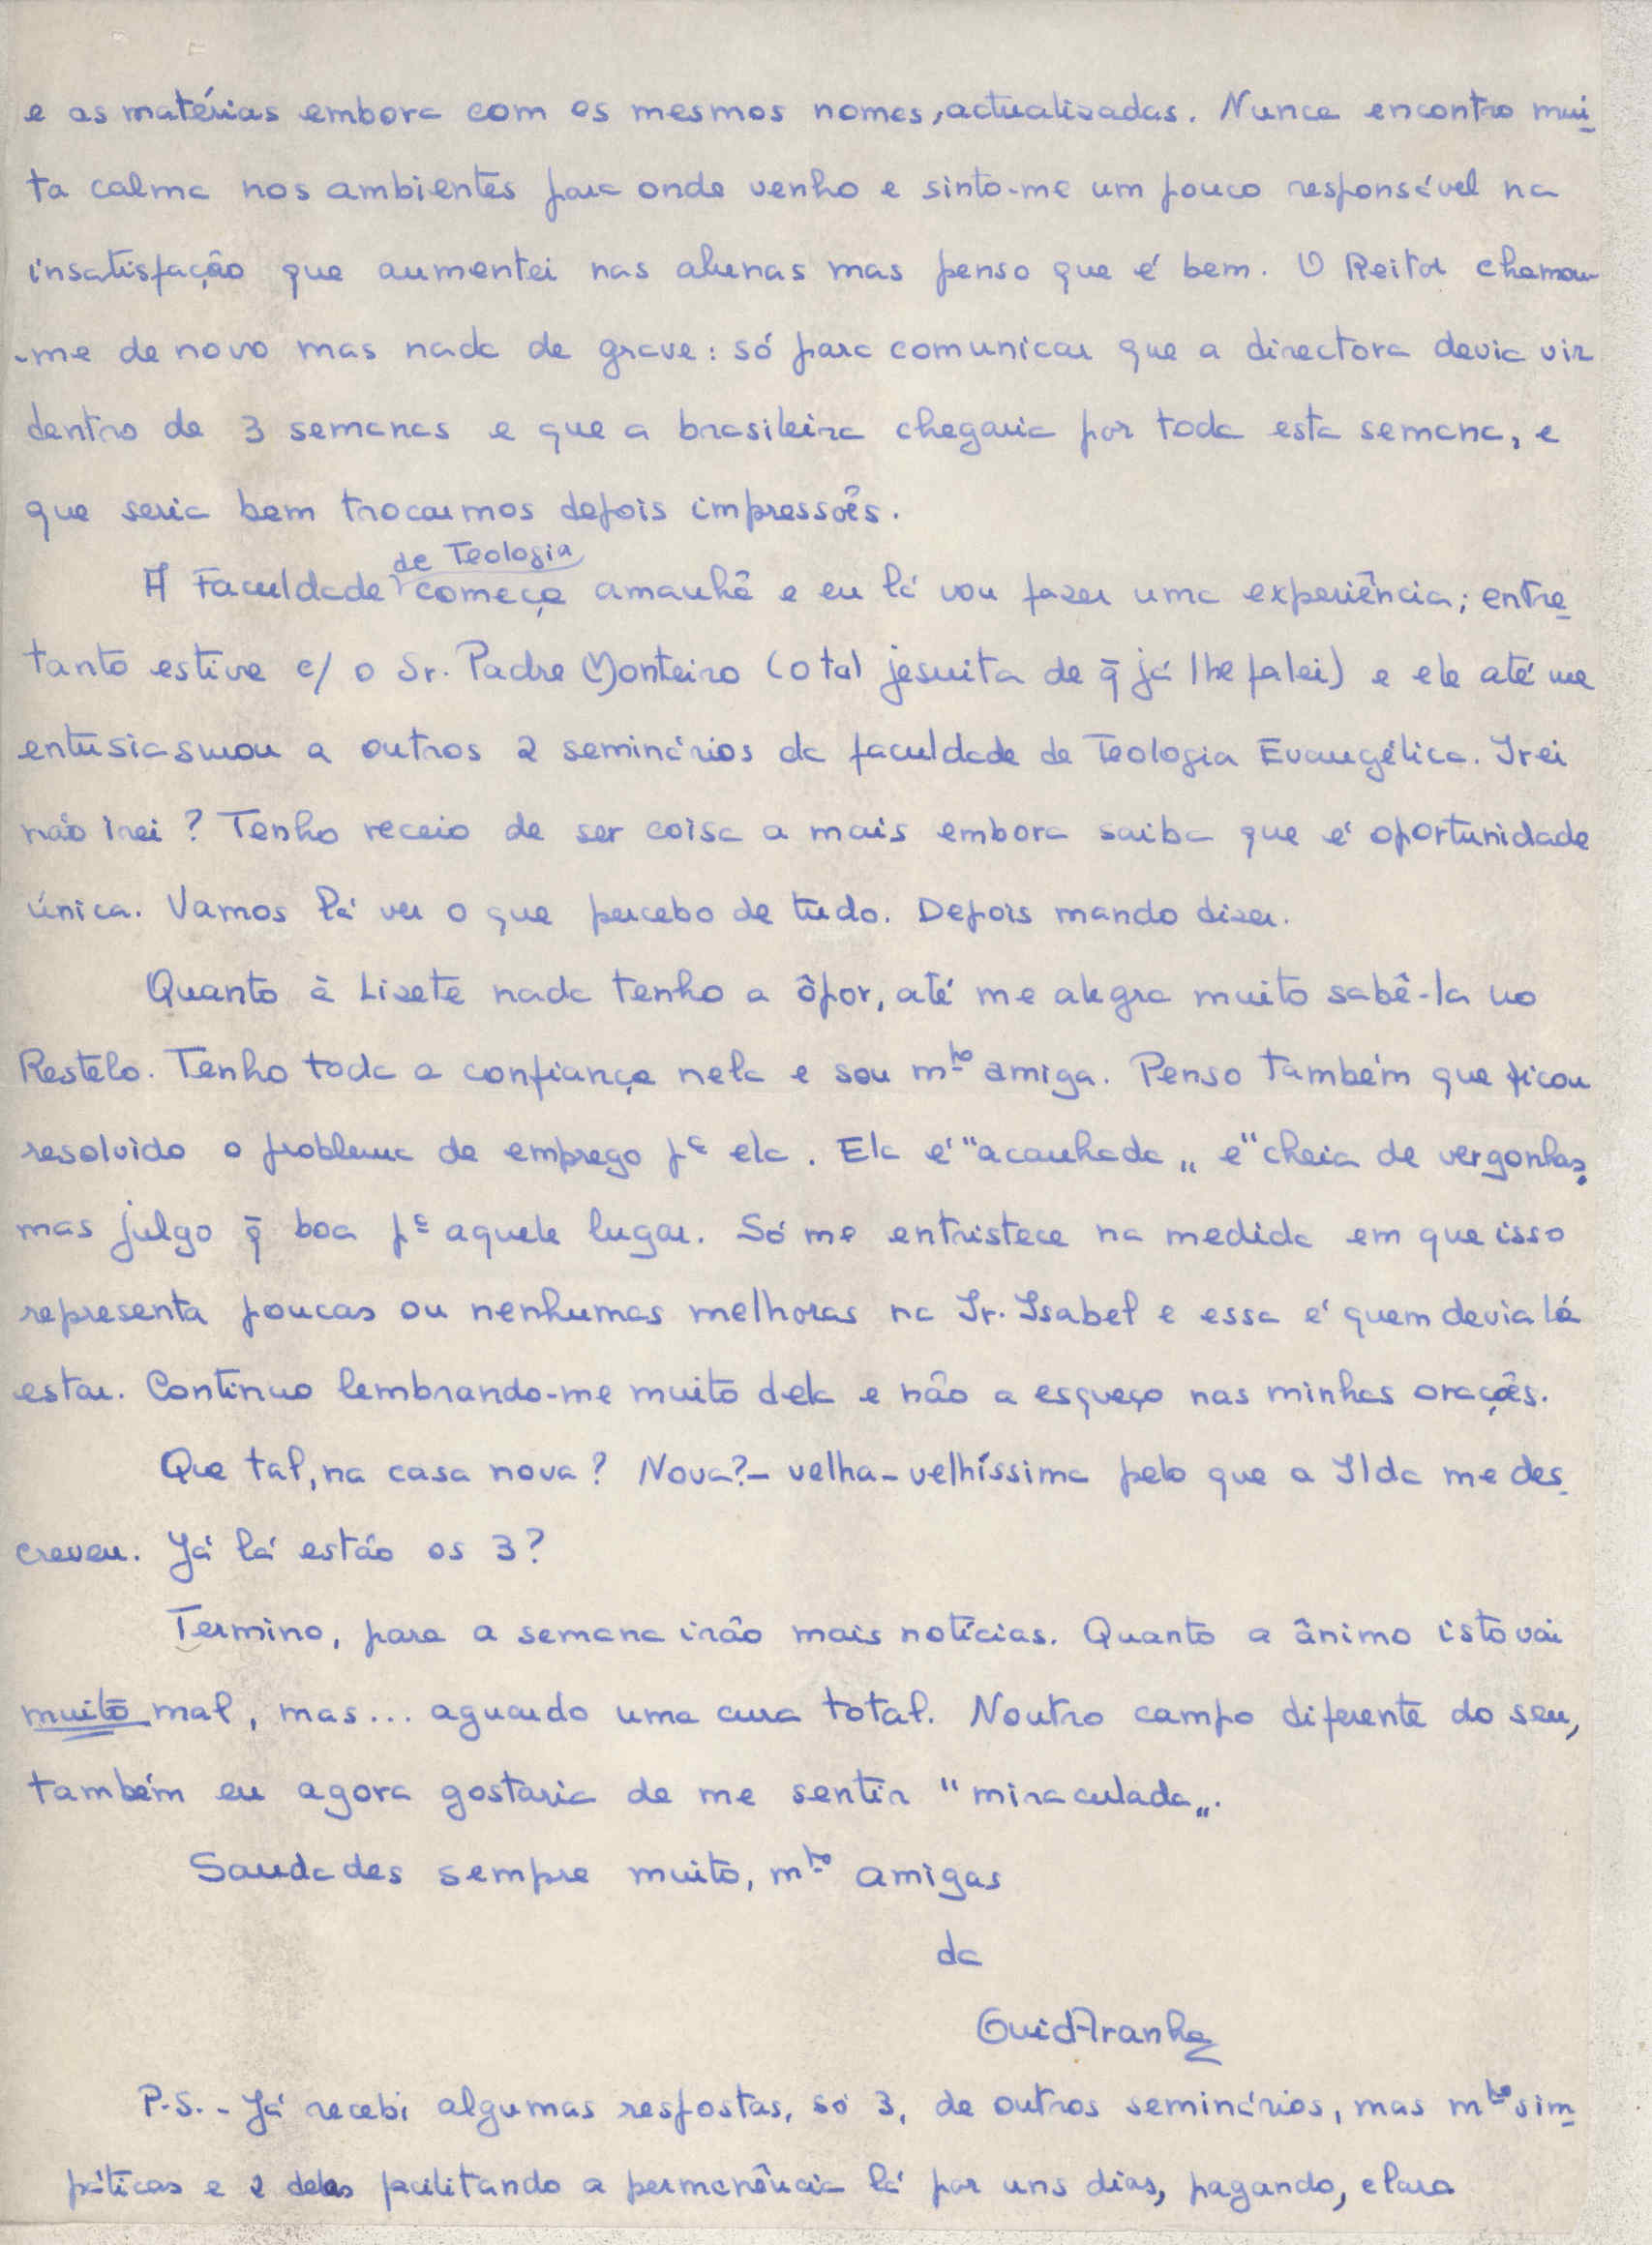 e as matérias embora com os mesmos nomes, actualizadas. Nunca encontro mui
ta calma nos ambientes para onde venho e sinto-me um pouco responsável na
insatisfação que aumentei nas alunas mas penso que é bem. O Reitor chamou-
-me de novo mas nada de grave: só para comunicar que a directora devia vir
dentro de 3 semanas e que a brasileira chegaria por toda esta semana, e
que seria bem trocarmos depois impressões.
A Faculdade de Teologia começa amanhã e eu lá vou fazer uma experiência; entre
tanto estive c/ o Sr. Padre Monteiro (o tal jesuita de q̄ já lhe falei) e ele até me
entusiasmou a outros 2 seminários da faculdade de Teologia Evangélica. Irei
não irei? Tenho receio de ser coisa a mais embora saiba que é oportunidade
única. Vamos lá ver o que percebo de tudo. Depois mando dizer.
Quanto à Lizete nada tenho a ôpor, até me alegra muito sabê-la no
Restelo. Tenho toda a confiança nela e sou mto amiga. Penso também que ficou
resolvido o problema de emprego pª ela. Ela é "acanhada„ e "cheia de vergonhas„
mas julgo q̄ boa pª aquele lugar. Só me entristece na medida em que isso
representa poucas ou nenhumas melhoras na Ir. Isabel e essa é quem devia lá
estar. Continuo lembrando-me muito dela e não a esqueço nas minhas orações.
Que tal, na casa nova? Nova?- velha-velhíssima pelo que a Ilda me des
creveu. Já lá estão os 3?
Termino, para a semana irão mais notícias. Quanto a ânimo isto vai
muito mal, mas... aguardo uma cura total. Noutro campo diferente do seu,
também eu agora gostaria de me sentir "miraculada„.
Saudades sempre muito, mto amigas
da
GuidAranha
P.S. - Já recebi algumas respostas, só 3, de outros seminários, mas mto sim
páticas e 2 delas facilitando a permanência lá por uns dias, pagando, claro